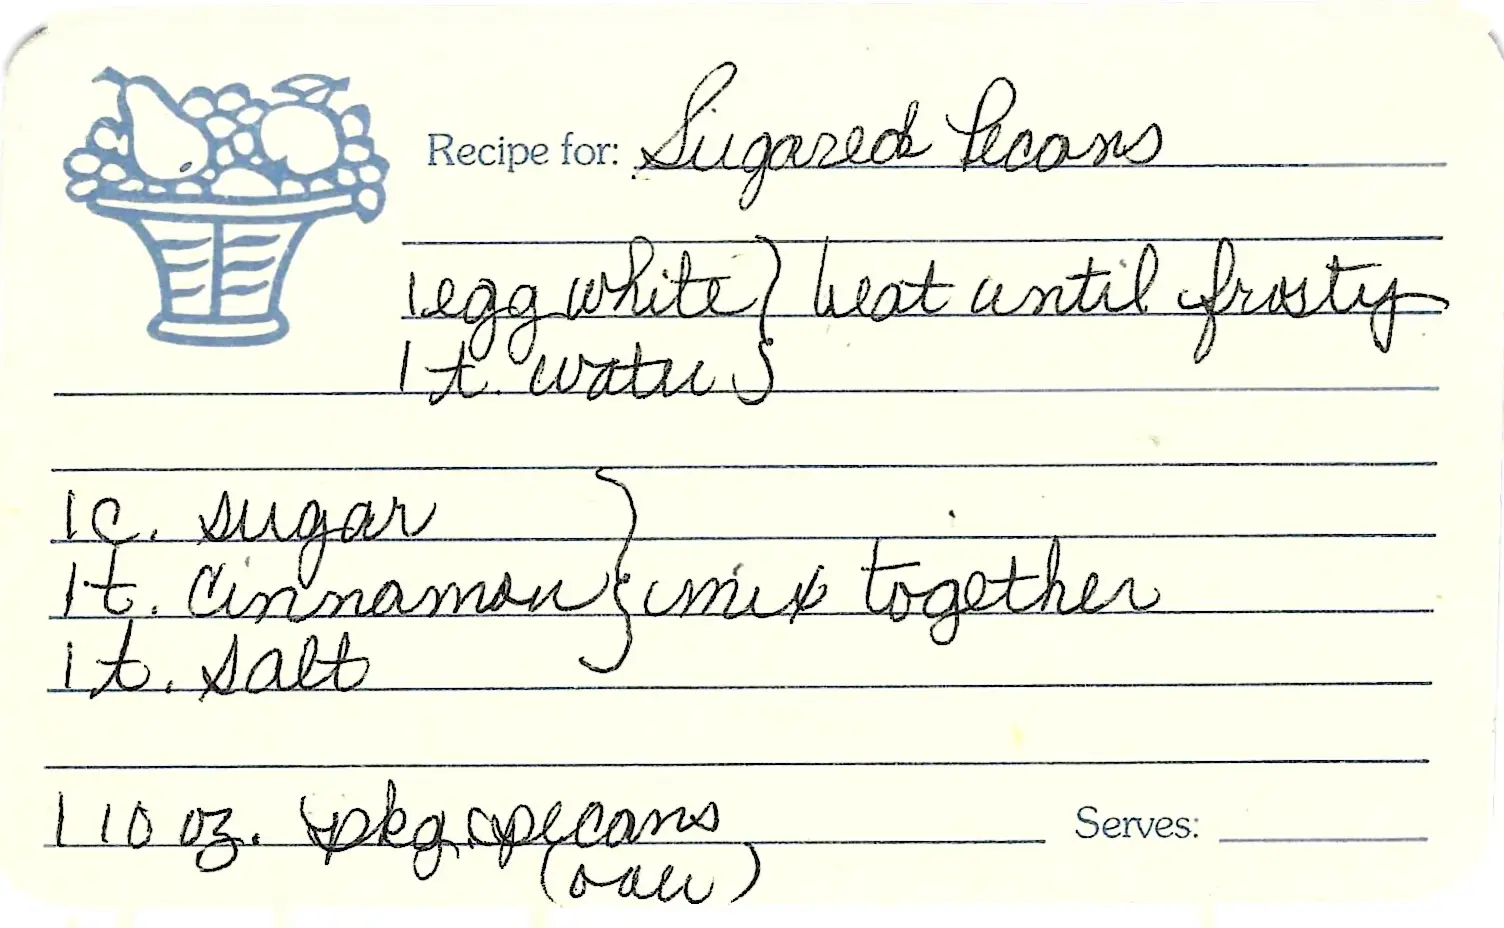 Recipe for: Sugared Pecans
1 egg white } beat until frosty
1 t. water
1 c. sugar
1 t. cinnamon } mix together
1 t. salt
1 10 oz. pkg. pecans
(raw)
Serves: